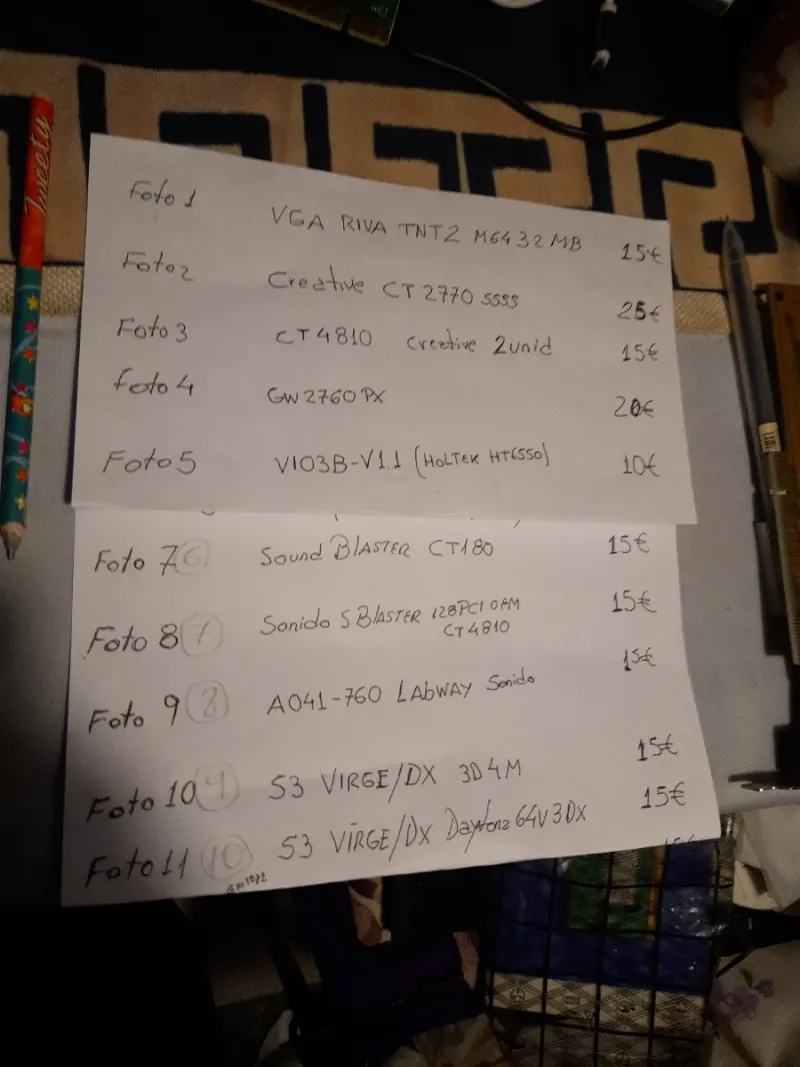 Tweety
Foto 1 VGA RIVA TNT2 M64 32 MB 15€
Foto 2 Creative CT 2770 SSSS 25€
Foto 3 CT4810 Creative 2unid 15€
Foto 4 GW2760PX 20€
Foto 5 VI03B-V1.1 (HOLTEK HT6550) 10€
Foto 7 (6) Sound BLASTER CT180 15€
Foto 8 (7) Sonido S BLASTER 128PCI OEM CT4810 15€
Foto 9 (8) A041-760 LABWAY Sonido 15€
Foto 10 (9) S3 VIRGE/DX 3D 4M 15€
Foto 11 (10) S3 VIRGE/DX Daytona 64V 3DX 15€